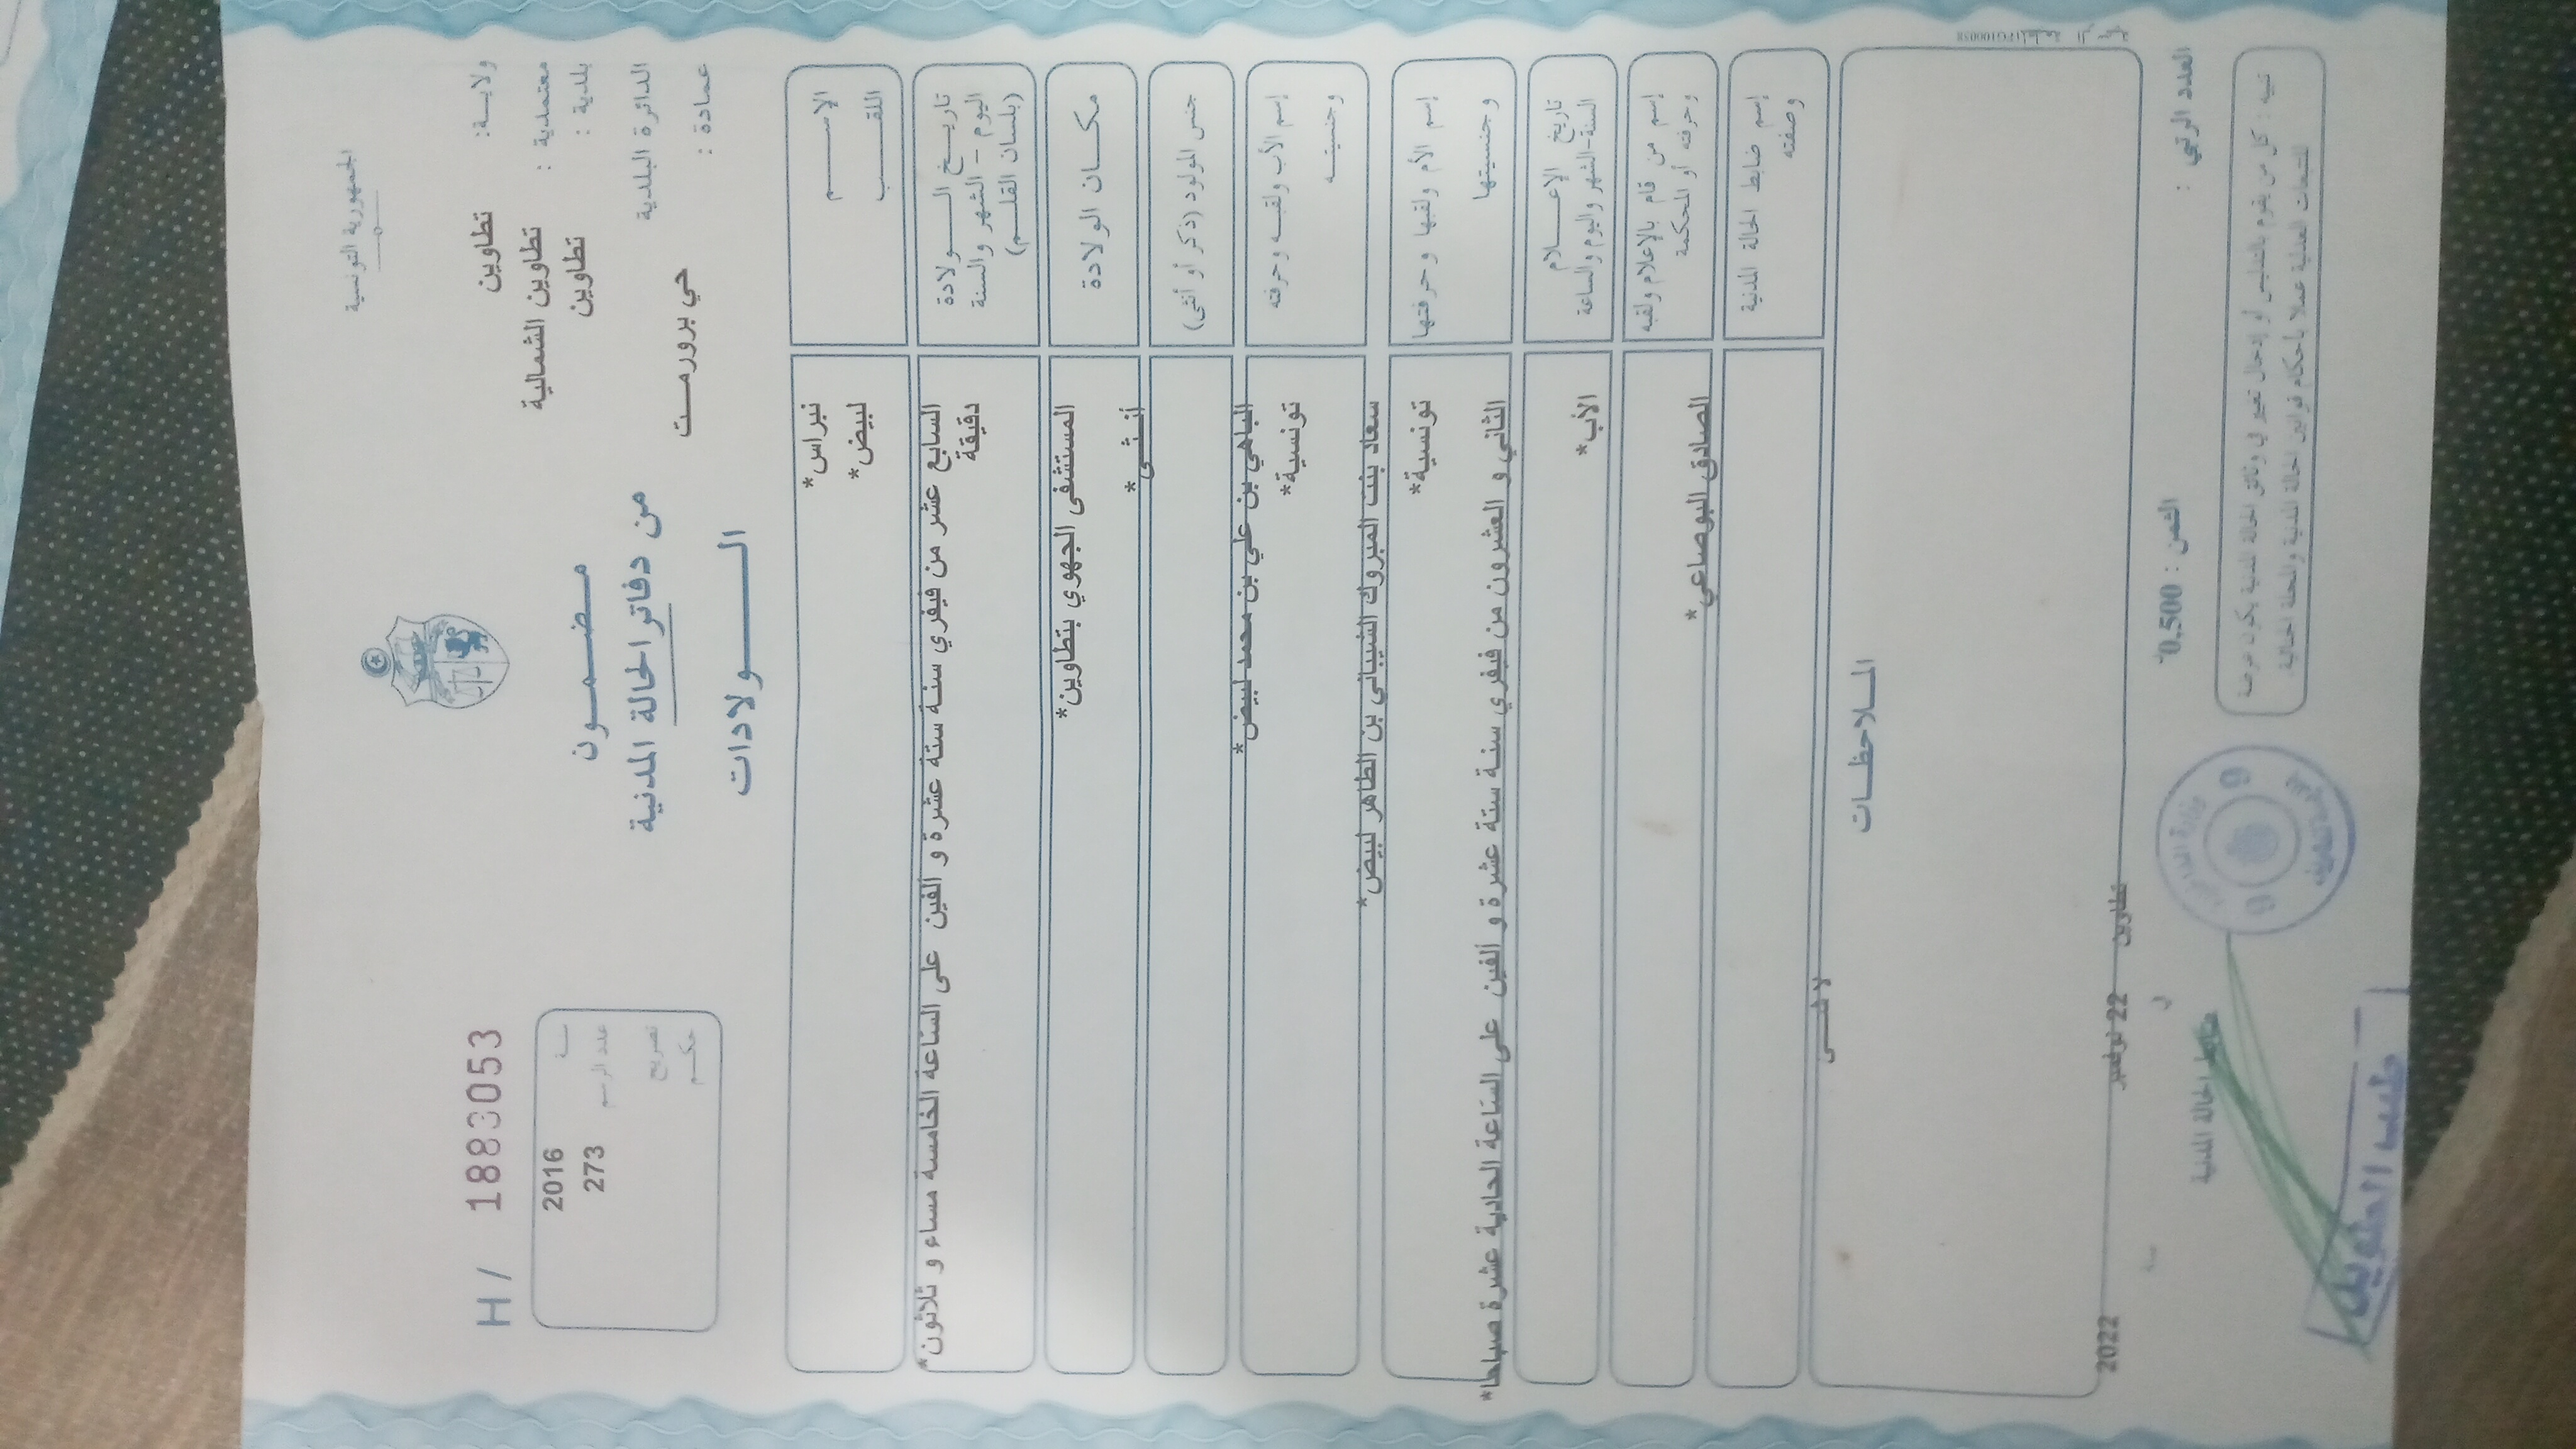 الجمهورية التونسية
ولايـة: تطاوين
معتمدية : تطاوين الشمالية
بلدية : تطاوين
الدائرة البلدية
عمادة : حي برورمـت
H / 1883053
سنـة 2016
عدد الرسـم 273
تصريح
حكـم
مـضـمـون
من دفاتر الحالة المدنية
الـولادات
الإسـم نبراس*
اللقـب لبيض*
تاريـخ الـولادة
اليوم - الشهر والسنة
(بلسان القلـم)
السابع عشر من فيفري سنة ستة عشرة و ألفين على الساعة الخامسة مساء و ثلاثون*
دقيقة
مكـان الولادة
المستشفى الجهوي بتطاوين*
جنس المولود (ذكر أو أنثى)
أنـثـى*
إسم الأب ولقبـه وحرفته
وجنسيتـه
الباهي بن علي بن محمد لبيض*
تونسية*
إسم الأم ولقبها وحرفتها
وجنسيتها
سعاد بنت المبروك الشيباني بن الطاهر لبيض*
تونسية*
تاريخ الإعـلام
السنة-الشهر واليوم والساعة
الثاني و العشرون من فيفري سنة ستة عشرة و ألفين على الساعة الحادية عشرة صباحا*
إسم من قام بالإعلام ولقبه
وحرفته أو المحكمة
الأب*
إسم ضابط الحالة المدنية
وصفته
الصادق البوصاعي*
الملاحظـات
لا شـى
تطاوين في 22 نوفمبر سنة 2022
العدد الرتبي :
الثمن : 0,500
ضابط الحالة المدنية
تنبيه : كل من يقوم بالتدليس أو إدخال تغيير في وثائق الحالة المدنية يكون عرضة
للتتبعات العدلية عملا بأحكام قوانين الحالة المدنية والمجلة الجزائية